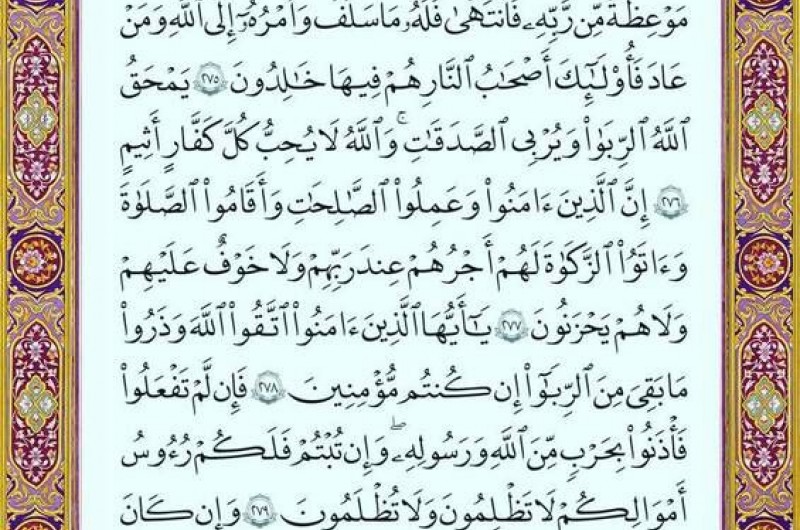 مَوْعِظَةٌ مِّن رَّبِّهِۦ فَٱنتَهَىٰ فَلَهُۥ مَا سَلَفَ وَأَمْرُهُۥٓ إِلَى ٱللَّهِ وَمَنْ
عَادَ فَأُو۟لَٰٓئِكَ أَصْحَٰبُ ٱلنَّارِ هُمْ فِيهَا خَٰلِدُونَ ٢٧٥ يَمْحَقُ
ٱللَّهُ ٱلرِّبَوٰا۟ وَيُرْبِى ٱلصَّدَقَٰتِ ۗ وَٱللَّهُ لَا يُحِبُّ كُلَّ كَفَّارٍ أَثِيمٍ
٢٧٦ إِنَّ ٱلَّذِينَ ءَامَنُوا۟ وَعَمِلُوا۟ ٱلصَّٰلِحَٰتِ وَأَقَامُوا۟ ٱلصَّلَوٰةَ
وَءَاتَوُا۟ ٱلزَّكَوٰةَ لَهُمْ أَجْرُهُمْ عِندَ رَبِّهِمْ وَلَا خَوْفٌ عَلَيْهِمْ
وَلَا هُمْ يَحْزَنُونَ ٢٧٧ يَٰٓأَيُّهَا ٱلَّذِينَ ءَامَنُوا۟ ٱتَّقُوا۟ ٱللَّهَ وَذَرُوا۟
مَا بَقِىَ مِنَ ٱلرِّبَوٰٓا۟ إِن كُنتُم مُّؤْمِنِينَ ٢٧٨ فَإِن لَّمْ تَفْعَلُوا۟
فَأْذَنُوا۟ بِحَرْبٍ مِّنَ ٱللَّهِ وَرَسُولِهِۦ ۖ وَإِن تُبْتُمْ فَلَكُمْ رُءُوسُ
أَمْوَٰلِكُمْ لَا تَظْلِمُونَ وَلَا تُظْلَمُونَ ٢٧٩ وَإِن كَانَ